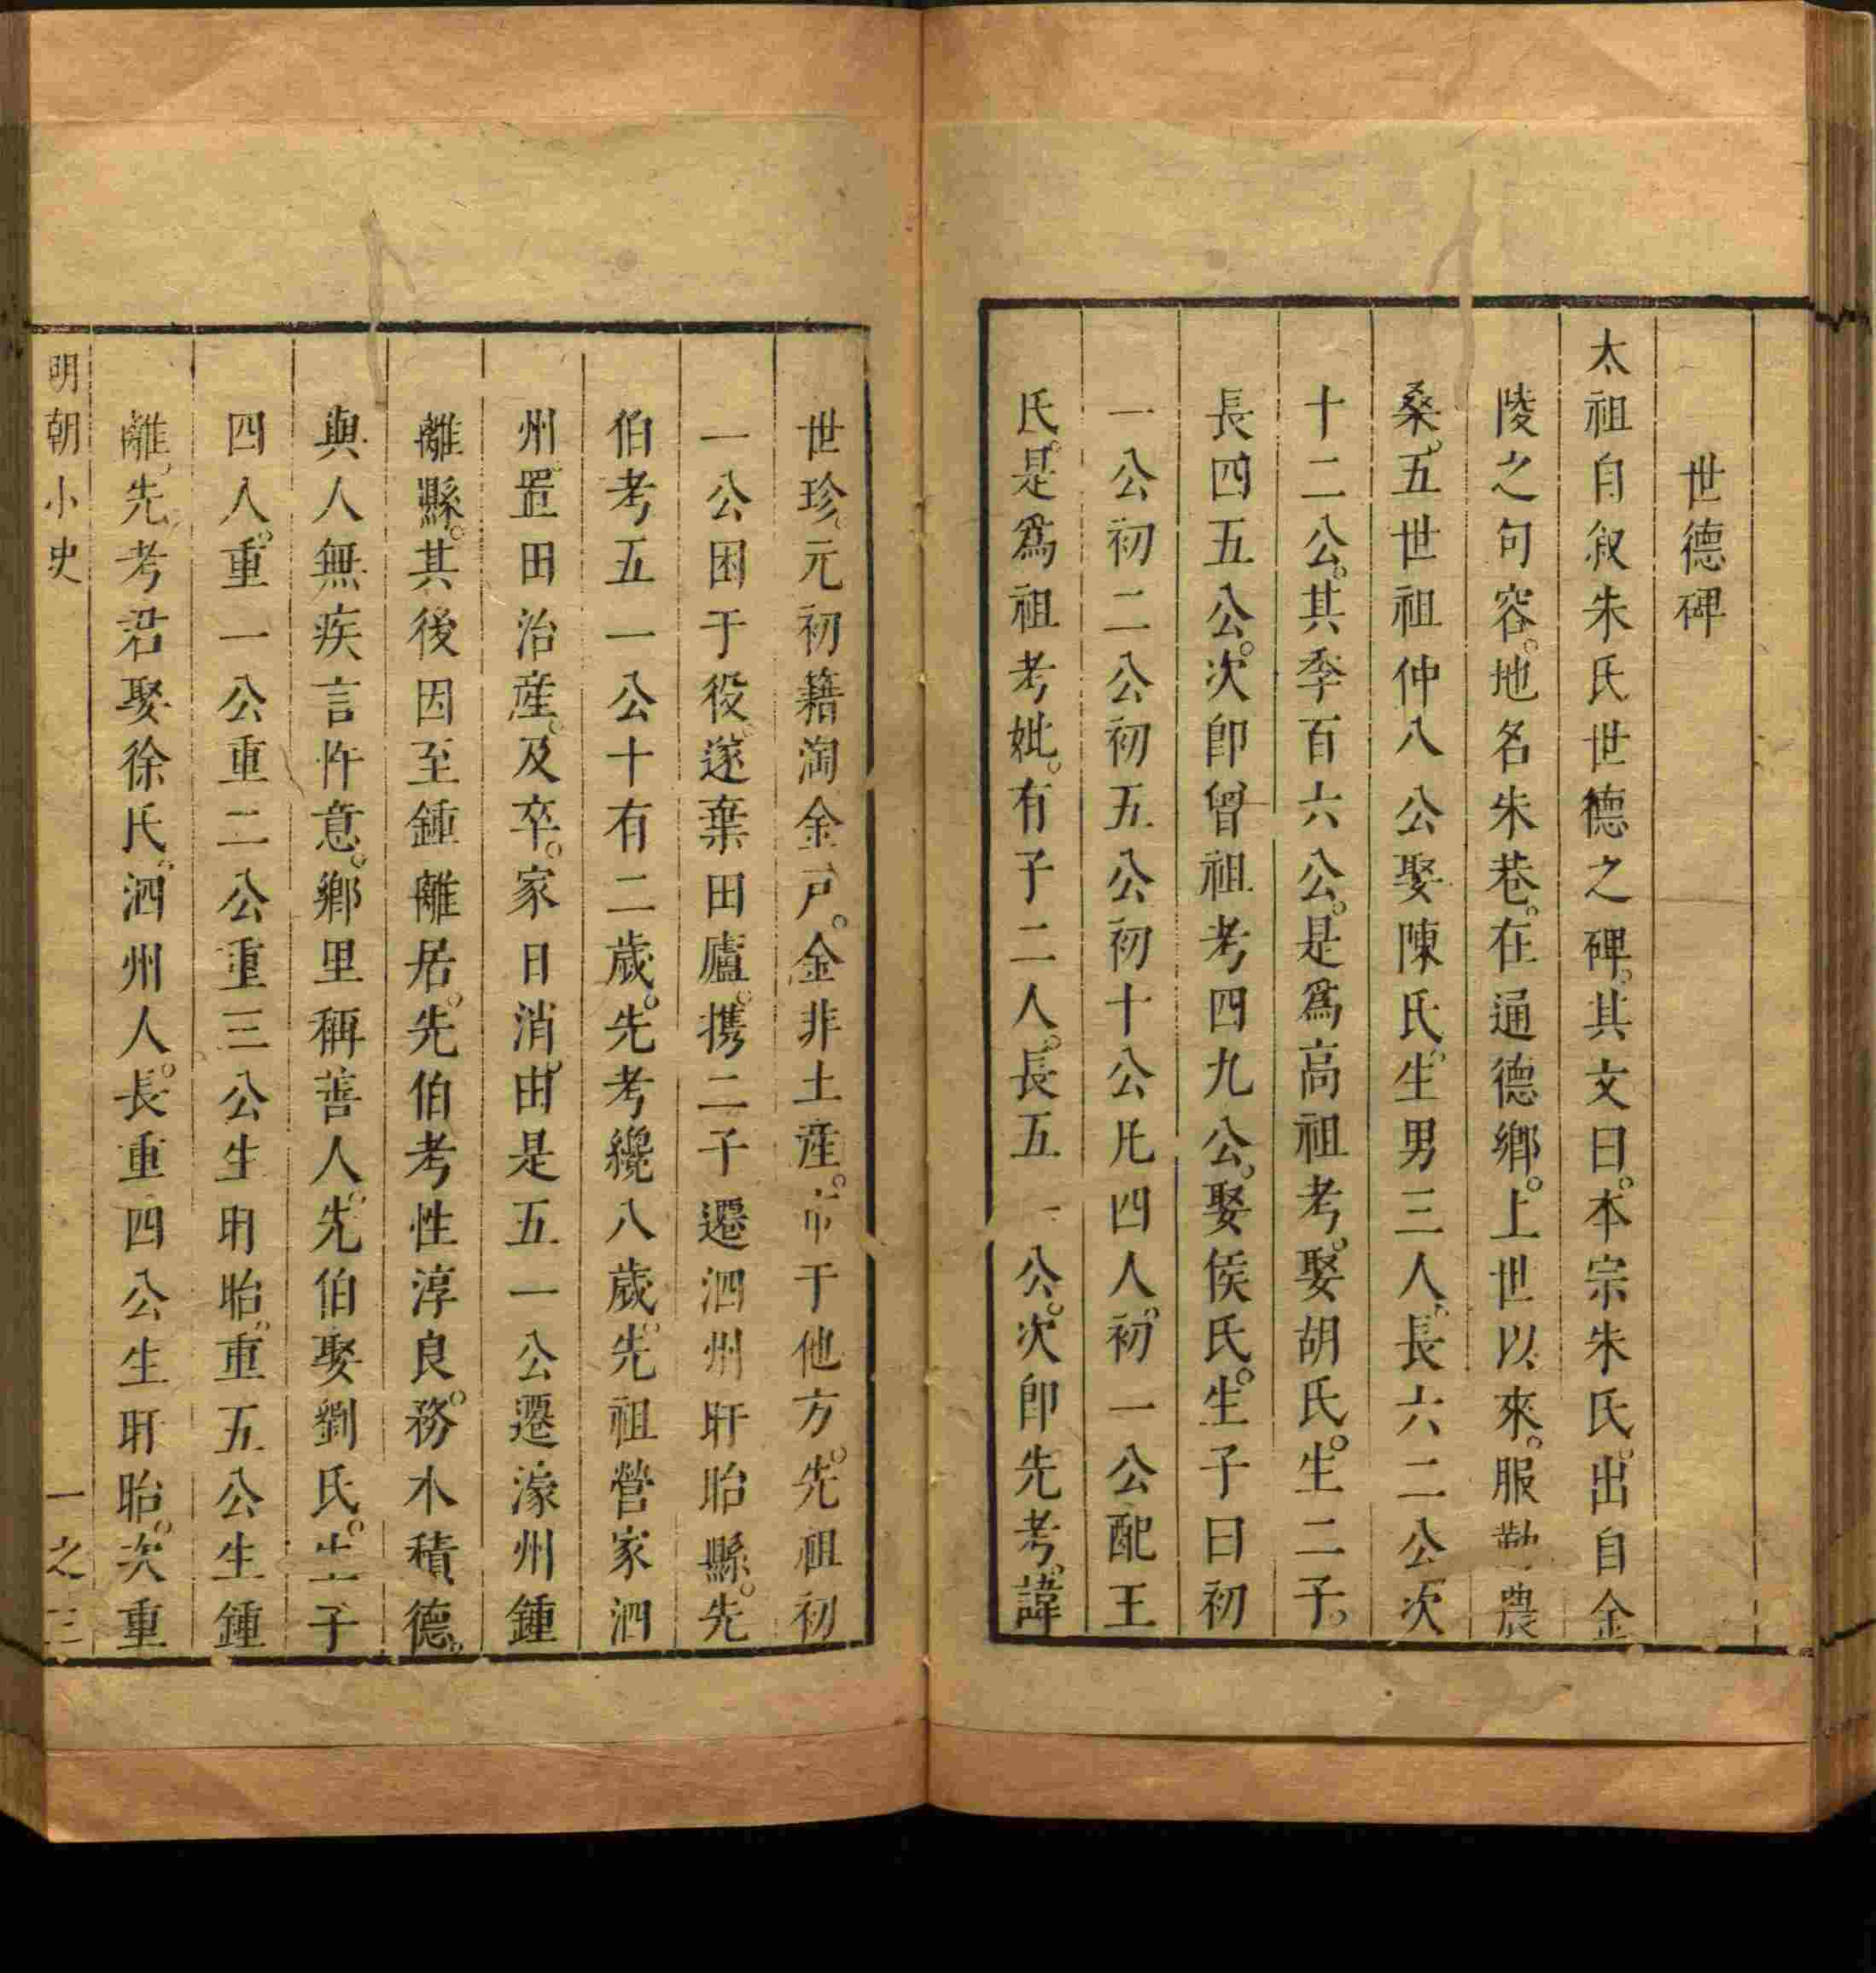 世德碑
太祖自敘朱氏世德之碑。其文曰。本宗朱氏。出自金
陵之句容。地名朱巷。在通德鄉。上世以來。服勤農
桑。五世祖仲八公娶陳氏。生男三人。長六二公次
十二公。其季百六公。是爲高祖考。娶胡氏。生二子。
長四五公。次即曾祖考四九公。娶侯氏。生子曰初
一公初二公初五公初十公凡四人。初一公配王
氏。是爲祖考妣。有子二人。長五一公。次即先考。諱
世珍。元初籍淘金戸。金非土產。市于他方。先祖初
一公困于役。遂棄田廬。携二子遷泗州盱眙縣。先
伯考五一公十有二歲。先考纔八歲。先祖營家泗
州。置田治產。及卒。家日消。由是五一公遷濠州鍾
離縣。其後因至鍾離居。先伯考性淳良。務本積德。
與人無疾言忤意。鄉里稱善人。先伯娶劉氏。生子
四人。重一公重二公重三公生盱眙。重五公生鍾
離。先考君娶徐氏。泗州人。長重四公生盱眙。次重
明朝小史
一之三